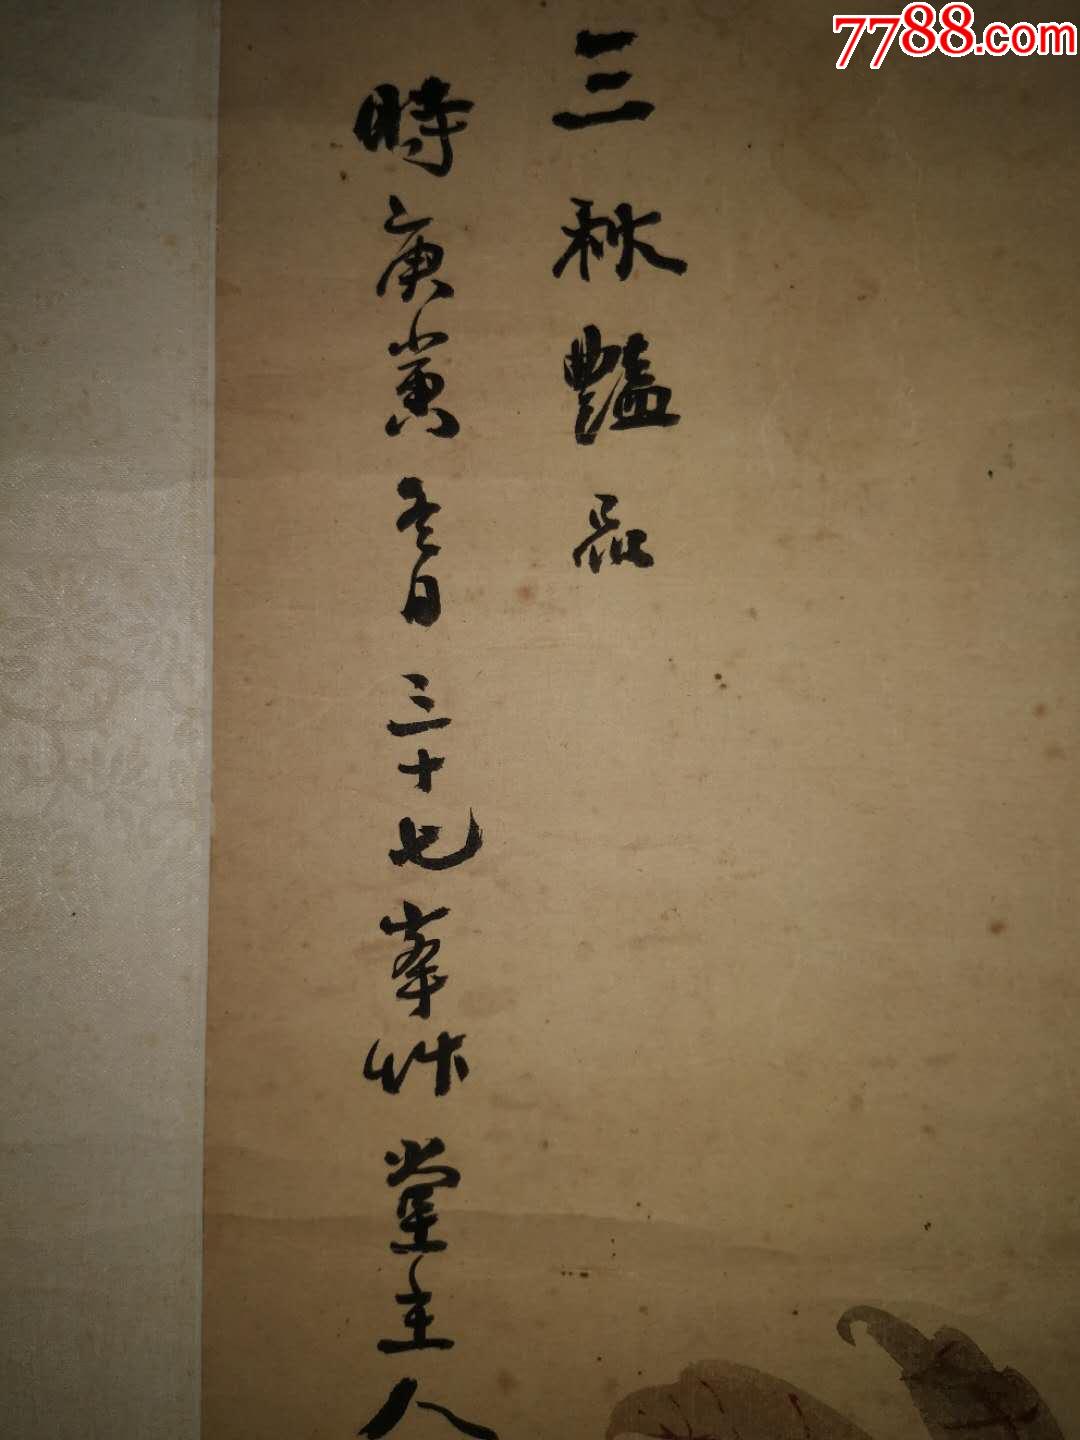 7788.com
三秋豔品
時庚寅冬日三十七峯艸堂主人